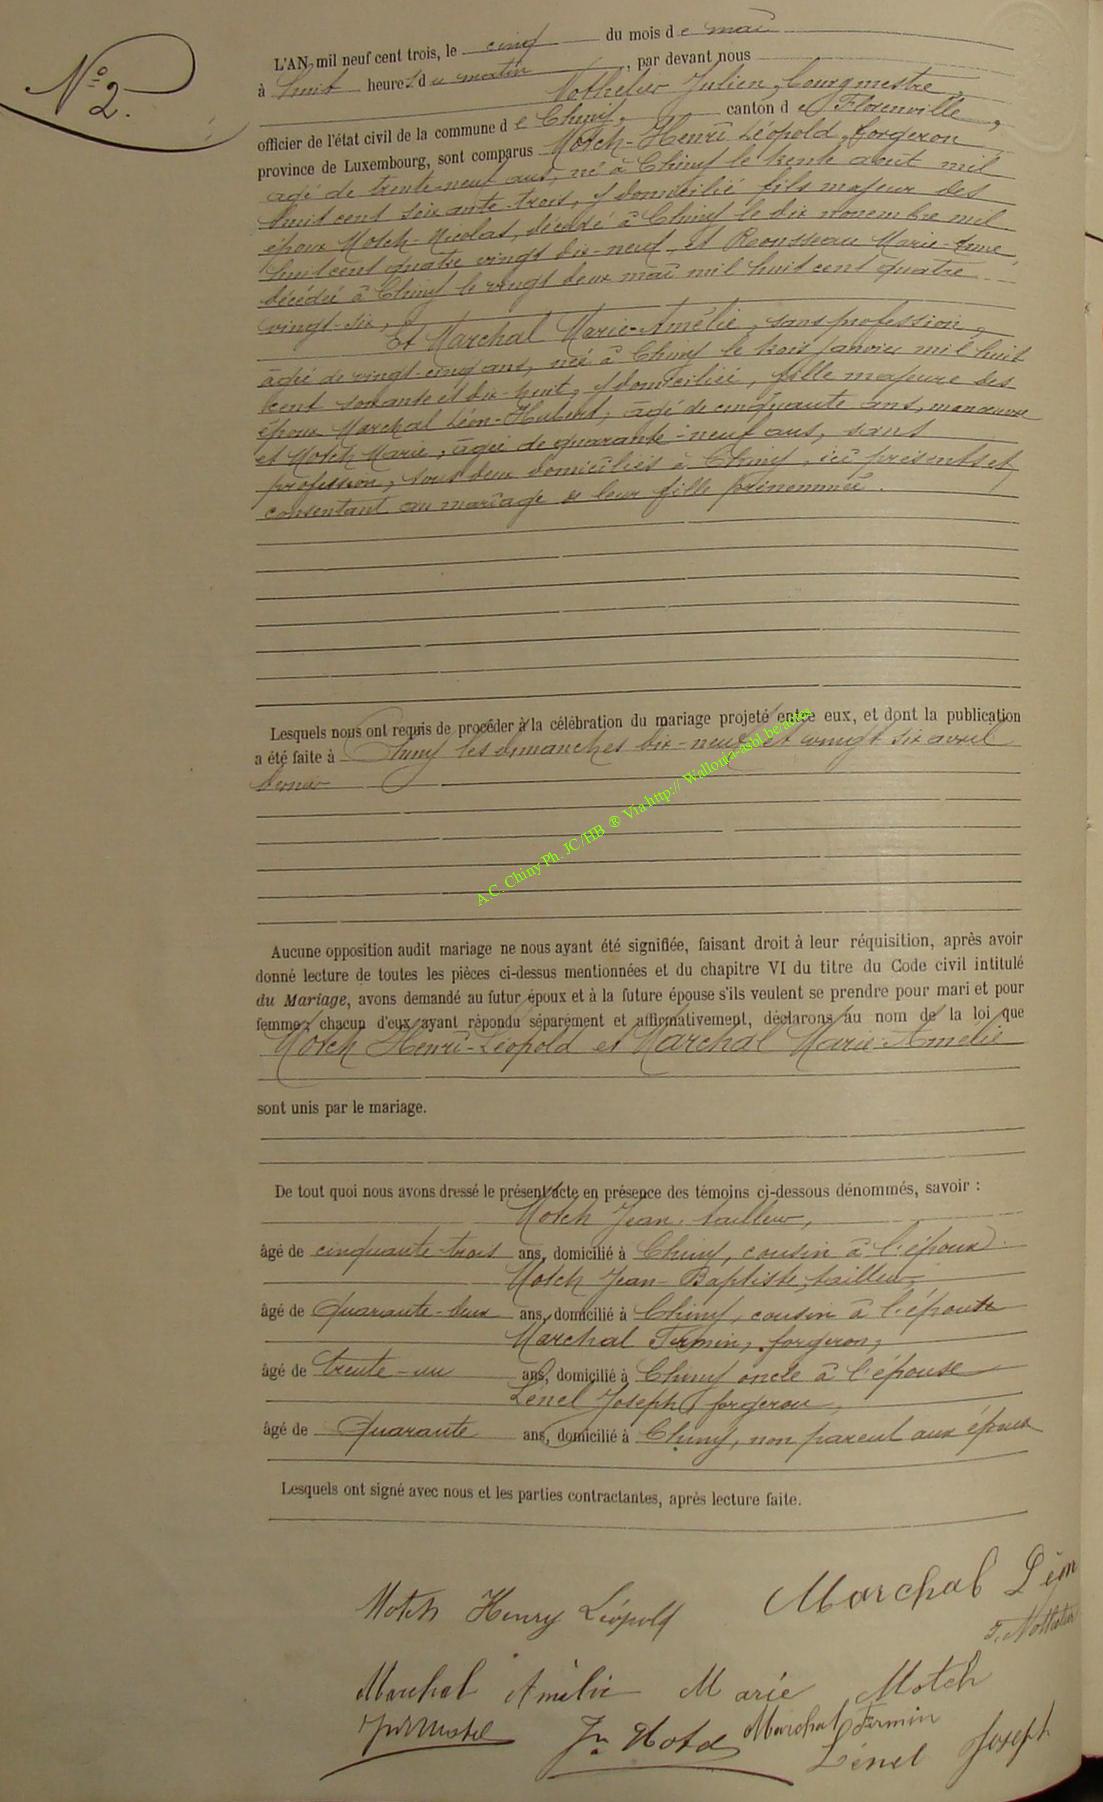 N° 2.
L'AN mil neuf cent trois, le cinq du mois de mai
à huit heures du matin, par devant nous
Nothelier Julien, bourgmestre,
officier de l'état civil de la commune de Chiny, canton de Florenville,
province de Luxembourg, sont comparus Motch Henri Léopold, forgeron
agé de trente-neuf ans, né à Chiny le trente aout mil
huit cent soixante-trois, y domicilié fils majeur des
époux Motch Nicolas, décédé à Chiny le dix novembre mil
huit cent quatre vingt dix-neuf et Rousseau Marie-Anne
décédée à Chiny le vingt deux mai mil huit cent quatre
vingt-six,
Et Marchal Marie-Amélie, sans profession,
âgée de vingt-cinq ans, née à Chiny le trois janvier mil huit
cent soixante et dix-huit, y domiciliée, fille majeure des
époux Marchal Léon-Hubert, âgé de cinquante ans, manœuvre
et Motch Marie, âgée de quarante-neuf ans, sans
profession, tous deux domiciliés à Chiny, ici présents et
consentant au mariage de leur fille prénommée.
Lesquels nous ont requis de procéder à la célébration du mariage projeté entre eux, et dont la publication
a été faite à Chiny les dimanches dix-neuf et vingt six avril
dernier
A.C. Chiny Ph. JC/HB ® Via http:// Wallonia-asbl.be/actes
Aucune opposition audit mariage ne nous ayant été signifiée, faisant droit à leur réquisition, après avoir
donné lecture de toutes les pièces ci-dessus mentionnées et du chapitre VI du titre du Code civil intitulé
du Mariage, avons demandé au futur époux et à la future épouse s'ils veulent se prendre pour mari et pour
femme; chacun d'eux ayant répondu séparément et affirmativement, déclarons au nom de la loi que
Motch Henri-Léopold et Marchal Marie-Amélie
sont unis par le mariage.
De tout quoi nous avons dressé le présent acte en présence des témoins ci-dessous dénommés, savoir :
Motch Jean, tailleur,
âgé de cinquante-trois ans, domicilié à Chiny, cousin à l'époux
Motch Jean-Baptiste, tailleur,
âgé de Quarante-deux ans, domicilié à Chiny, cousin à l'époux
Marchal Firmin, forgeron,
âgé de trente-un ans, domicilié à Chiny oncle à l'épouse
Lénel Joseph, forgeron,
âgé de Quarante ans, domicilié à Chiny, non parent aux époux
Lesquels ont signé avec nous et les parties contractantes, après lecture faite.
Motch Henry Léopold
Marchal Léon
J. Nothelier
Marchal Amélie
Marie Motch
Jn Motch
Marchal Firmin
Lénel Joseph